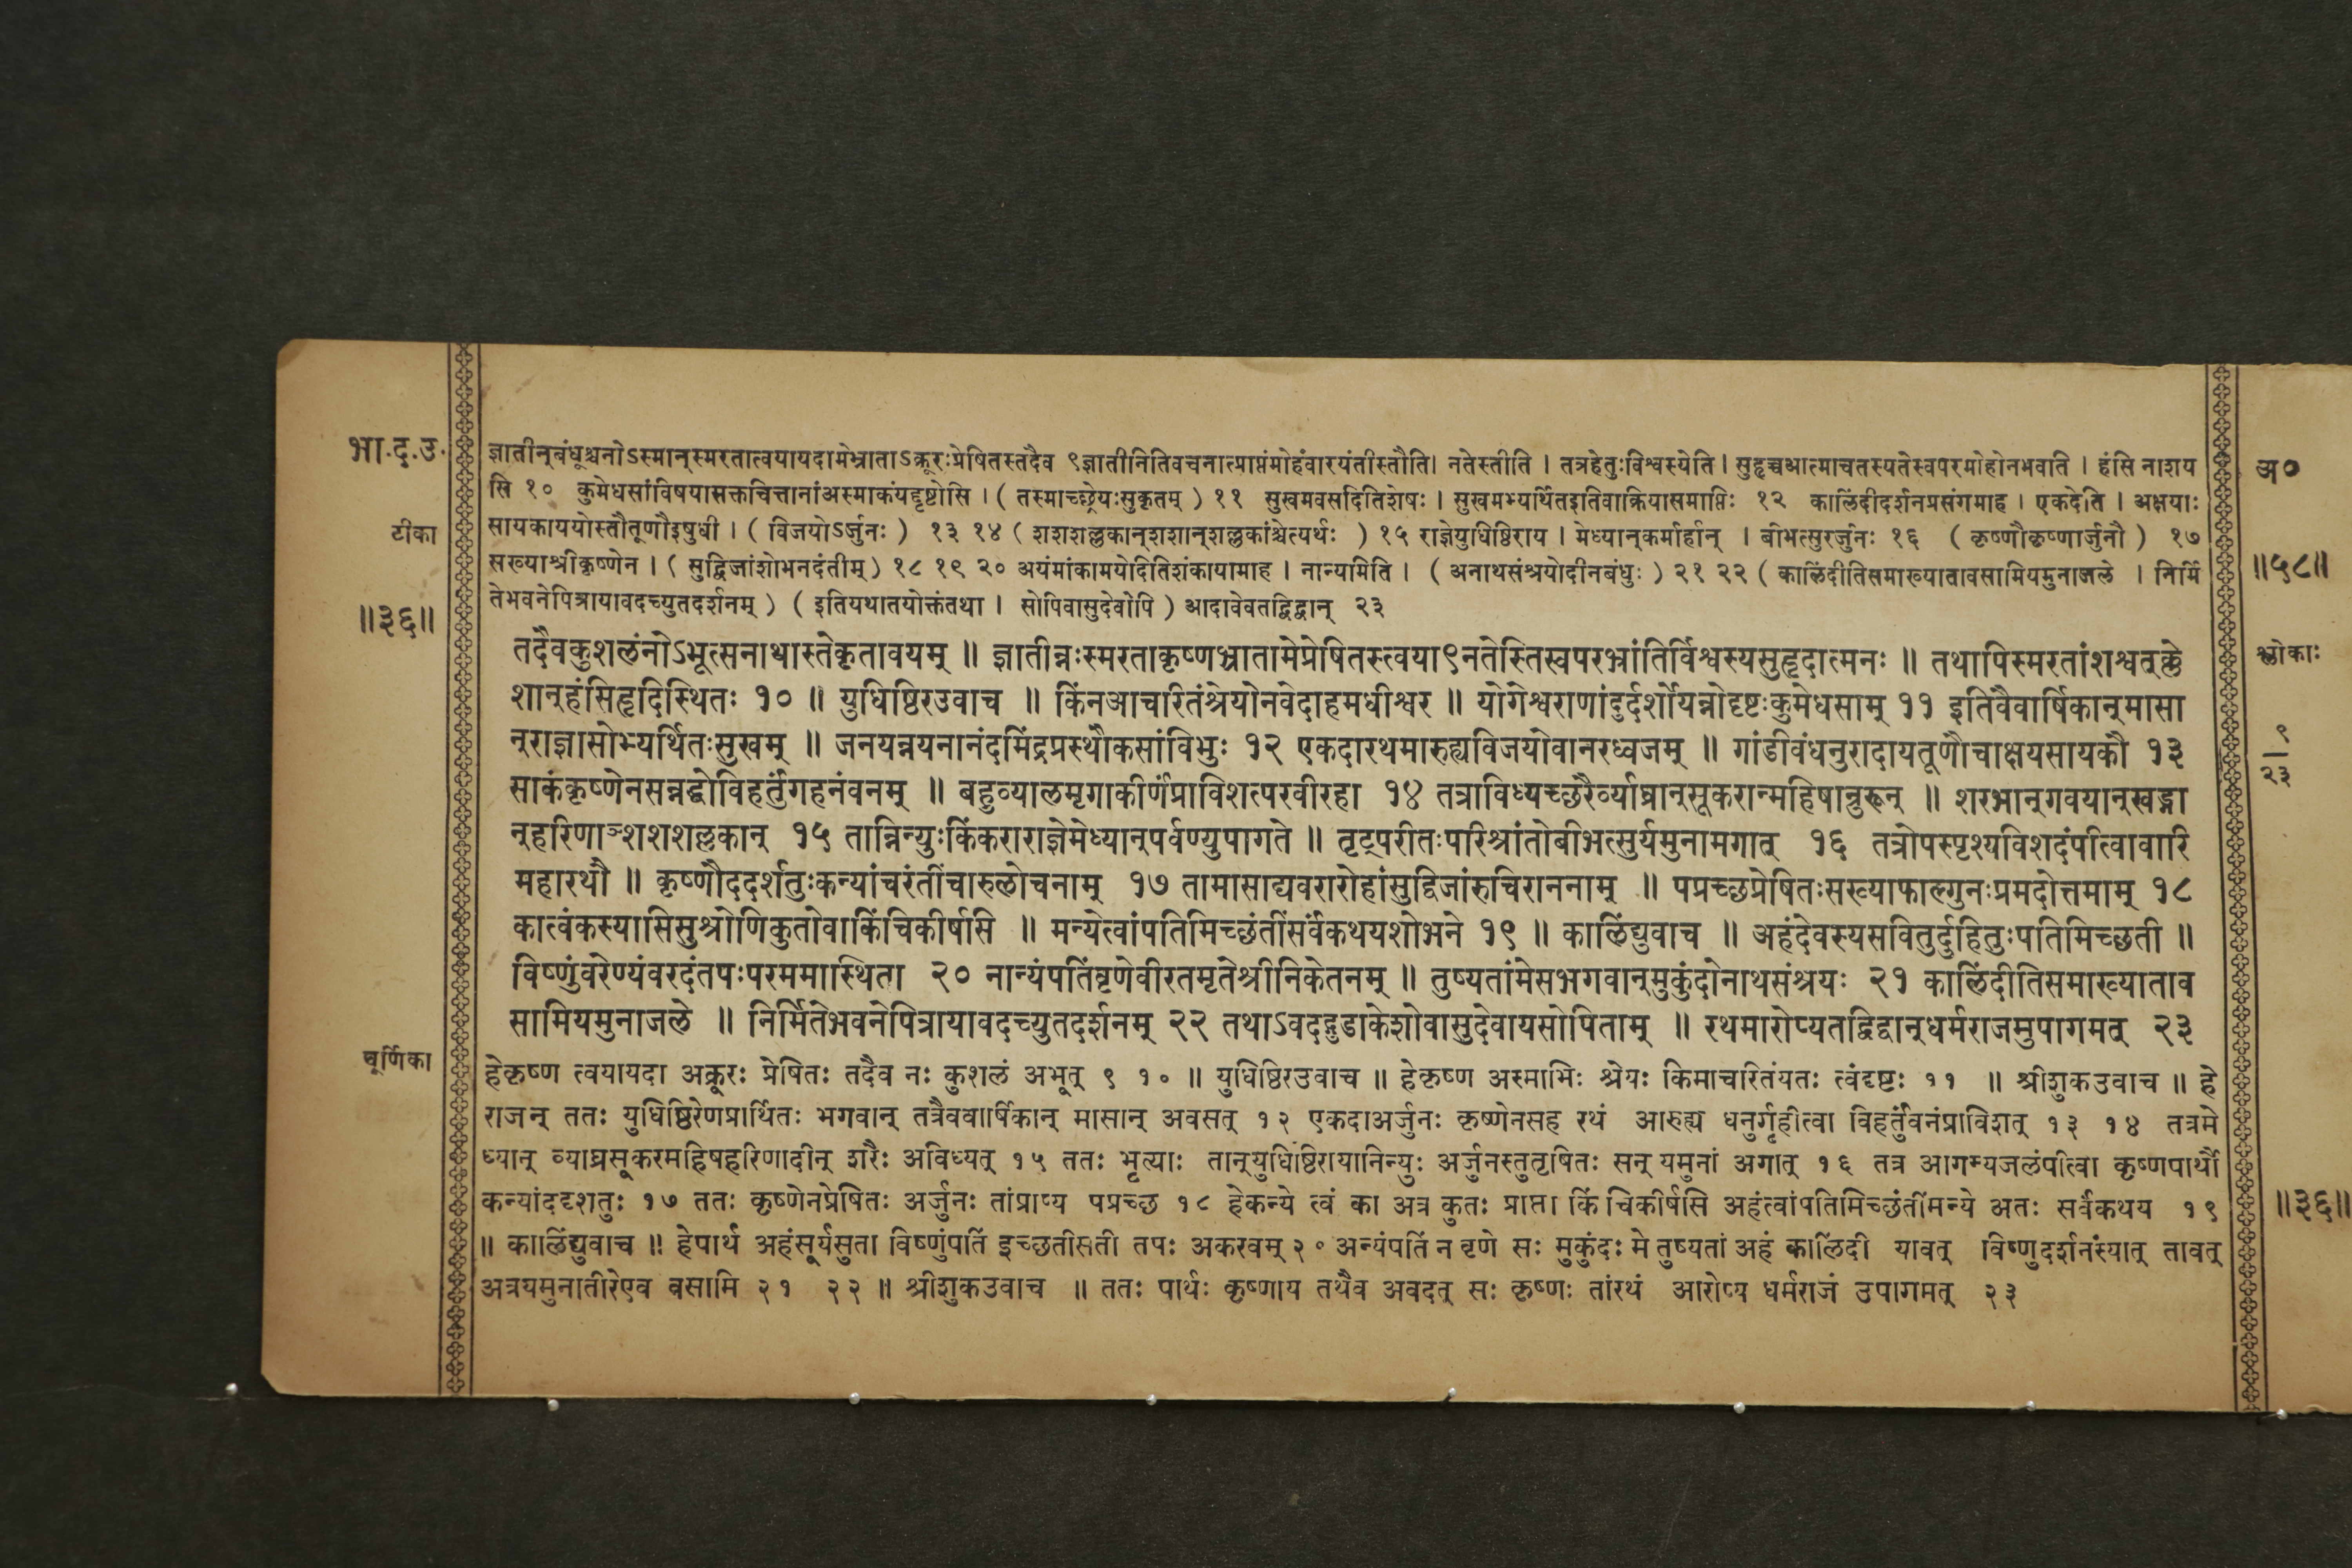 भा.द.उ.
टीका
॥३६॥
ज्ञातीन्बंधूश्चनोऽस्मान्स्मरतात्वयायदामेभ्राताऽक्रूरःप्रेषितस्तदैव ९ज्ञातीनितिवचनात्प्राप्तंमोहंवारयंतीस्तौति। नतेस्तीति । तत्रहेतुःविश्वस्येति । सुहृच्चआत्माचतस्यतेस्वपरमोहोनभवाति । हंसि नाशय
सि १० कुमेधसांविषयासक्तचित्तानांअस्माकंयद्दृष्टोसि । ( तस्माच्छ्रेयःसुकृतम् ) ११ सुखमवसदितिशेषः । सुखमभ्यर्थितइतिवाक्रियासमाप्तिः १२ कालिंदीदर्शनप्रसंगमाह । एकदेति । अक्षयाः
सायकाययोस्तौतूणौइषुधी । ( विजयोऽर्जुनः ) १३ १४ ( शशशल्लकान्शशान्शल्लकांश्चेत्यर्थः ) १५ राज्ञेयुधिष्ठिराय । मेध्यान्कर्मार्हान् । बीभत्सुरर्जुनः १६ ( कृष्णौकृष्णार्जुनौ ) १७
सख्याश्रीकृष्णेन । ( सुद्विजांशोभनदंतीम् ) १८ १९ २० अयंमांकामयेदितिशंकायामाह । नान्यमिति । ( अनाथसंश्रयोदीनबंधुः ) २१ २२ ( कालिंदीतिसमाख्यातावसामियमुनाजले । निर्मि
तेभवनेपित्रायावदच्युतदर्शनम् ) ( इतियथातयोक्तंतथा । सोपिवासुदेवोपि ) आदावेवतद्विद्वान् २३
तदैवकुशलंनोऽभूत्सनाथास्तेकृतावयम् ॥ ज्ञातीन्नःस्मरताकृष्णभ्रातामेप्रेषितस्त्वया९नतेस्तिस्वपरभ्रांतिर्विश्वस्यसुहृदात्मनः ॥ तथापिस्मरतांशश्वत्क्ले
शान्हंसिहृदिस्थितः १० ॥ युधिष्ठिरउवाच ॥ किंनआचरितंश्रेयोनवेदाहमधीश्वर ॥ योगेश्वराणांदुर्दर्शोयन्नोदृष्टःकुमेधसाम् ११ इतिवैवार्षिकान्मासा
न्राज्ञासोभ्यर्थितःसुखम् ॥ जनयन्नयनानंदमिंद्रप्रस्थौकसांविभुः १२ एकदारथमारुह्यविजयोवानरध्वजम् ॥ गांडीवंधनुरादायतूणौचाक्षयसायकौ १३
साकंकृष्णेनसन्नद्धोविहर्तुंगहनंवनम् ॥ बहुव्यालमृगाकीर्णंप्राविशत्परवीरहा १४ तत्राविध्यच्छरैर्व्याघ्रान्सूकरान्महिषान्रुरून् ॥ शरभान्गवयान्खड्गा
न्हरिणाञ्शशशल्लकान् १५ तान्निन्युःकिंकराराज्ञेमेध्यान्पर्वण्युपागते ॥ तृट्परीतःपरिश्रांतोबीभत्सुर्यमुनामगात् १६ तत्रोपस्पृश्यविशदंपीत्वावारि
महारथौ ॥ कृष्णौददर्शतुःकन्यांचरंतींचारुलोचनाम् १७ तामासाद्यवरारोहांसुद्विजांरुचिराननाम् ॥ पप्रच्छप्रेषितःसख्याफाल्गुनःप्रमदोत्तमाम् १८
कात्वंकस्यासिसुश्रोणिकुतोवाकिंचिकीर्षसि ॥ मन्येत्वांपतिमिच्छंतींसर्वंकथयशोभने १९ ॥ कालिंद्युवाच ॥ अहंदेवस्यसवितुर्दुहितुःपतिमिच्छती ॥
विष्णुंवरेण्यंवरदंतपःपरममास्थिता २० नान्यंपतिंवृणेवीरतमृतेश्रीनिकेतनम् ॥ तुष्यतांमेसभगवान्मुकुंदोनाथसंश्रयः २१ कालिंदीतिसमाख्याताव
सामियमुनाजले ॥ निर्मितेभवनेपित्रायावदच्युतदर्शनम् २२ तथाऽवदद्गुडाकेशोवासुदेवायसोपिताम् ॥ रथमारोप्यतद्विद्वान्धर्मराजमुपागमत् २३
चूर्णिका
हेकृष्ण त्वयायदा अक्रूरः प्रेषितः तदैव नः कुशलं अभूत् ९ १० ॥ युधिष्ठिरउवाच ॥ हेकृष्ण अस्माभिः श्रेयः किमाचरितंयतः त्वंदृष्टः ११ ॥ श्रीशुकउवाच ॥ हे
राजन् ततः युधिष्ठिरेणप्रार्थितः भगवान् तत्रैववार्षिकान् मासान् अवसत् १२ एकदाअर्जुनः कृष्णेनसह रथं आरुह्य धनुर्गृहीत्वा विहर्तुंवनंप्राविशत् १३ १४ तत्रमे
ध्यान् व्याघ्रसूकरमहिषहरिणादीन् शरैः अविध्यत् १५ ततः भृत्याः तान्युधिष्ठिरायानिन्युः अर्जुनस्तुतृषितः सन् यमुनां अगात् १६ तत्र आगम्यजलंपीत्वा कृष्णपार्थौ
कन्यांददृशतुः १७ ततः कृष्णेनप्रेषितः अर्जुनः तांप्राप्य पप्रच्छ १८ हेकन्ये त्वं का अत्र कुतः प्राप्ता किं चिकीर्षसि अहंत्वांपतिमिच्छंतींमन्ये अतः सर्वंकथय १९
॥ कालिंद्युवाच ॥ हेपार्थ अहंसूर्यसुता विष्णुंपतिं इच्छतीसती तपः अकरवम् २० अन्यंपतिं न वृणे सः मुकुंदः मे तुष्यतां अहं कालिंदी यावत् विष्णुदर्शनंस्यात् तावत्
अत्रयमुनातीरेएव वसामि २१ २२ ॥ श्रीशुकउवाच ॥ ततः पार्थः कृष्णाय तथैव अवदत् सः कृष्णः तांरथं आरोप्य धर्मराजं उपागमत् २३
अ०
॥५८॥
श्लोकाः
९
२३
॥३६॥